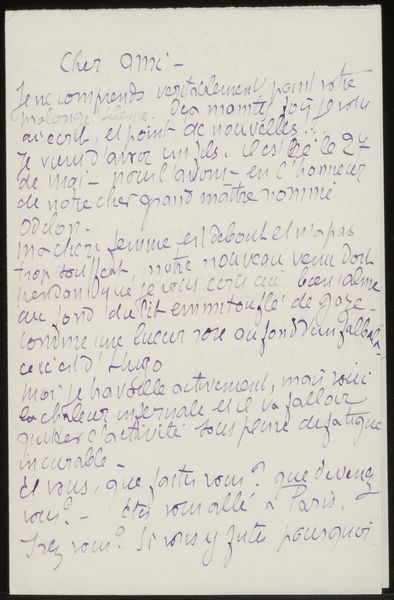 Cher Ami -
Je ne comprends veritablement point votre
prolongé silence. Deja maintes fois je vous
ai ecrit, et point de nouvelles...
Je viens d'avoir un fils. il est né le 27
de mai - nous l'avons - en l'honneur
de notre cher grand maître nommé
Odilon.
ma chere femme est debout et n'a pas
trop souffert, notre nouveau venu dort
pendant que je vous ecris ceci, bien calme
au fond du lit emmitouflé de gaze -
comme une lueur rose au fond d'un
ceci est d'Hugo
moi je travaille activement, mais voici
la chaleur infernale et il va falloir
l'activité sous peine de fatigue
incurable -
Et vous, que faites vous? que devenez
vous? - êtes vous allé à Paris,
Irez vous? Si vous y fûtes pourquoi